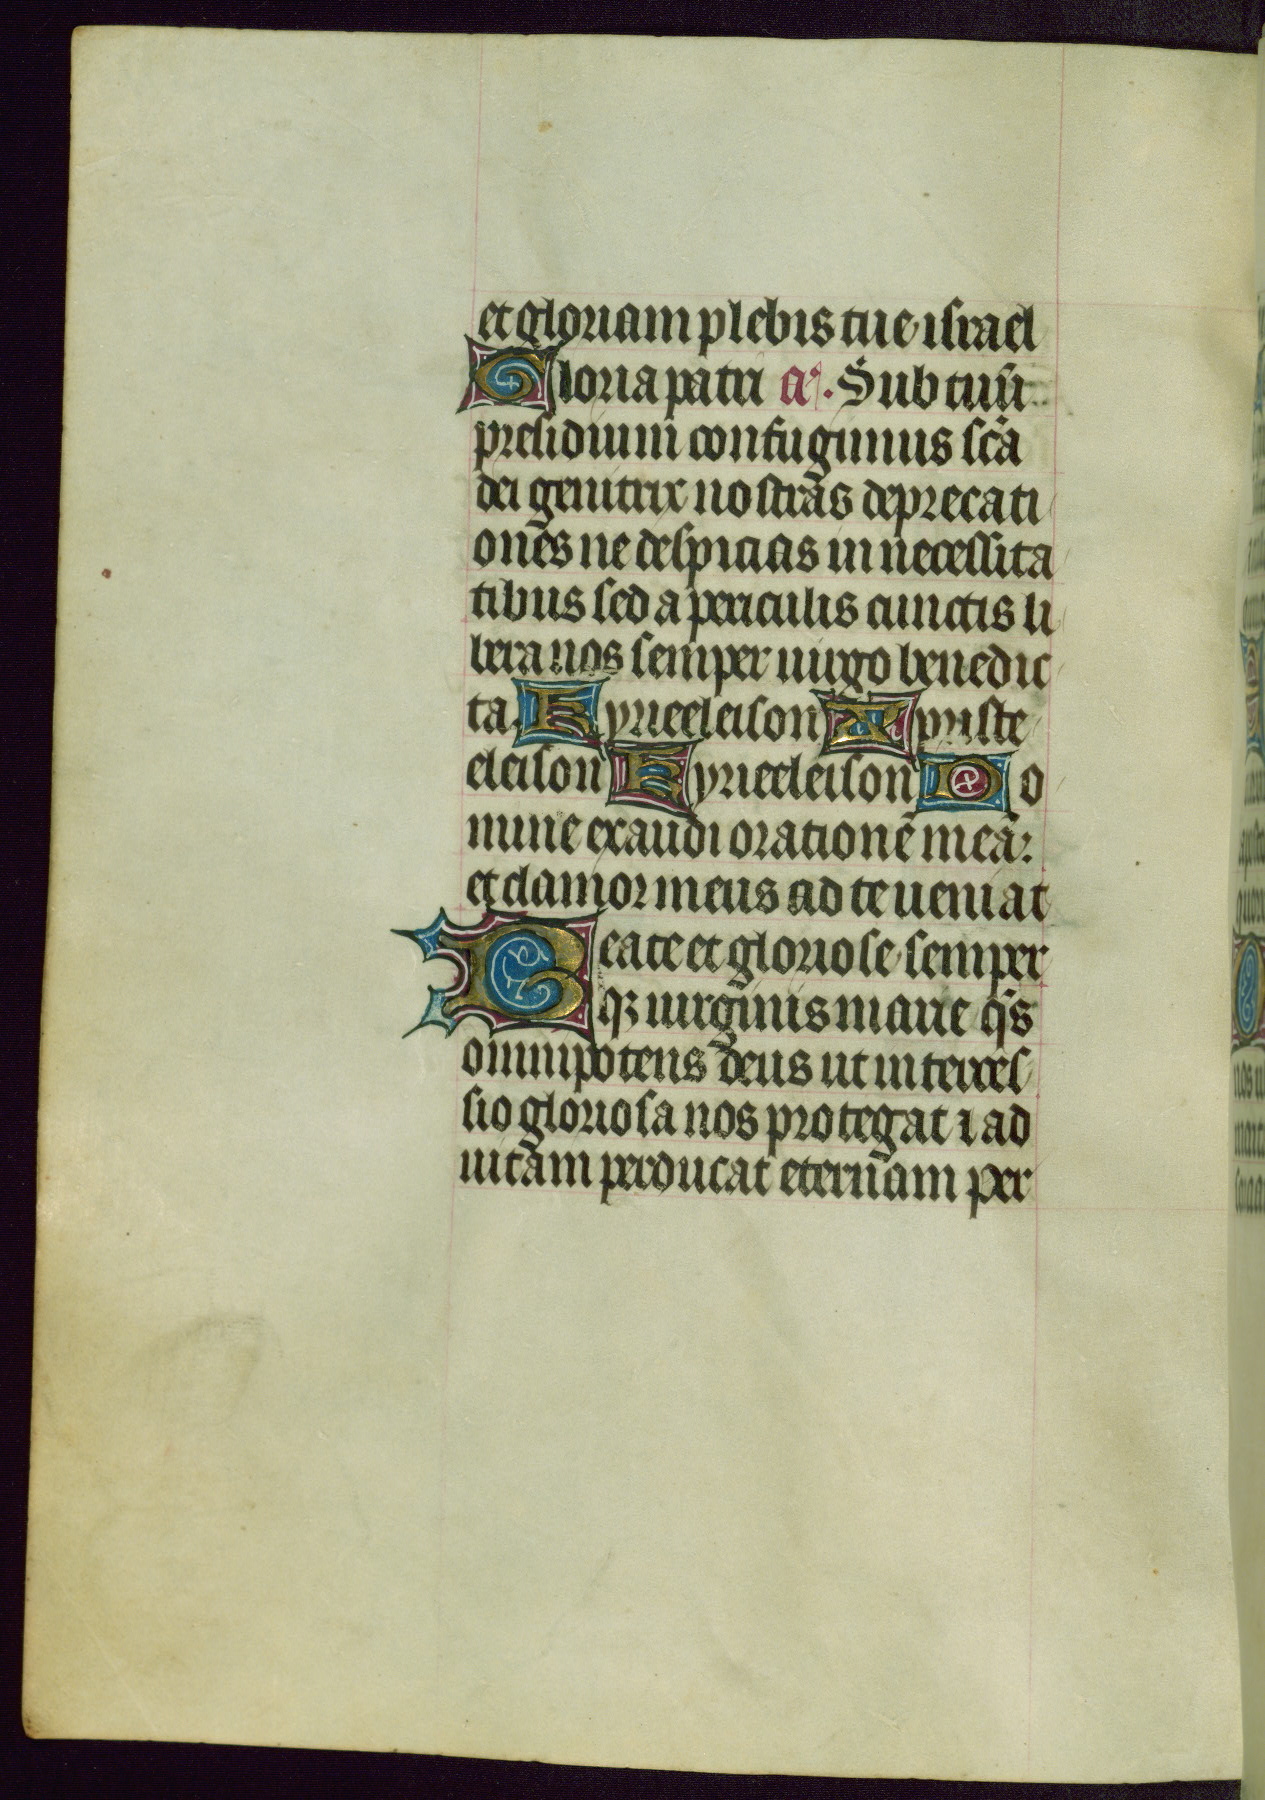 et gloriam plebis tue israel
Gloria patri a. Sub tuū
presidium confugimus scā
dei genitrix nostras deprecati
ones ne despicias in necessita
tibus sed a periculis cunctis li
bera nos semper uirgo benedic
ta. Kyrieeleison Xpriste
eleison Kyrieeleison Do
mine exaudi orationē meā:
et clamor meus ad te ueniat
Beate et gloriose semper
qꝫ uirginis marie qs̄
omnipotens deus ut interces
sio gloriosa nos protegat ⁊ ad
uitam perducat eternam per